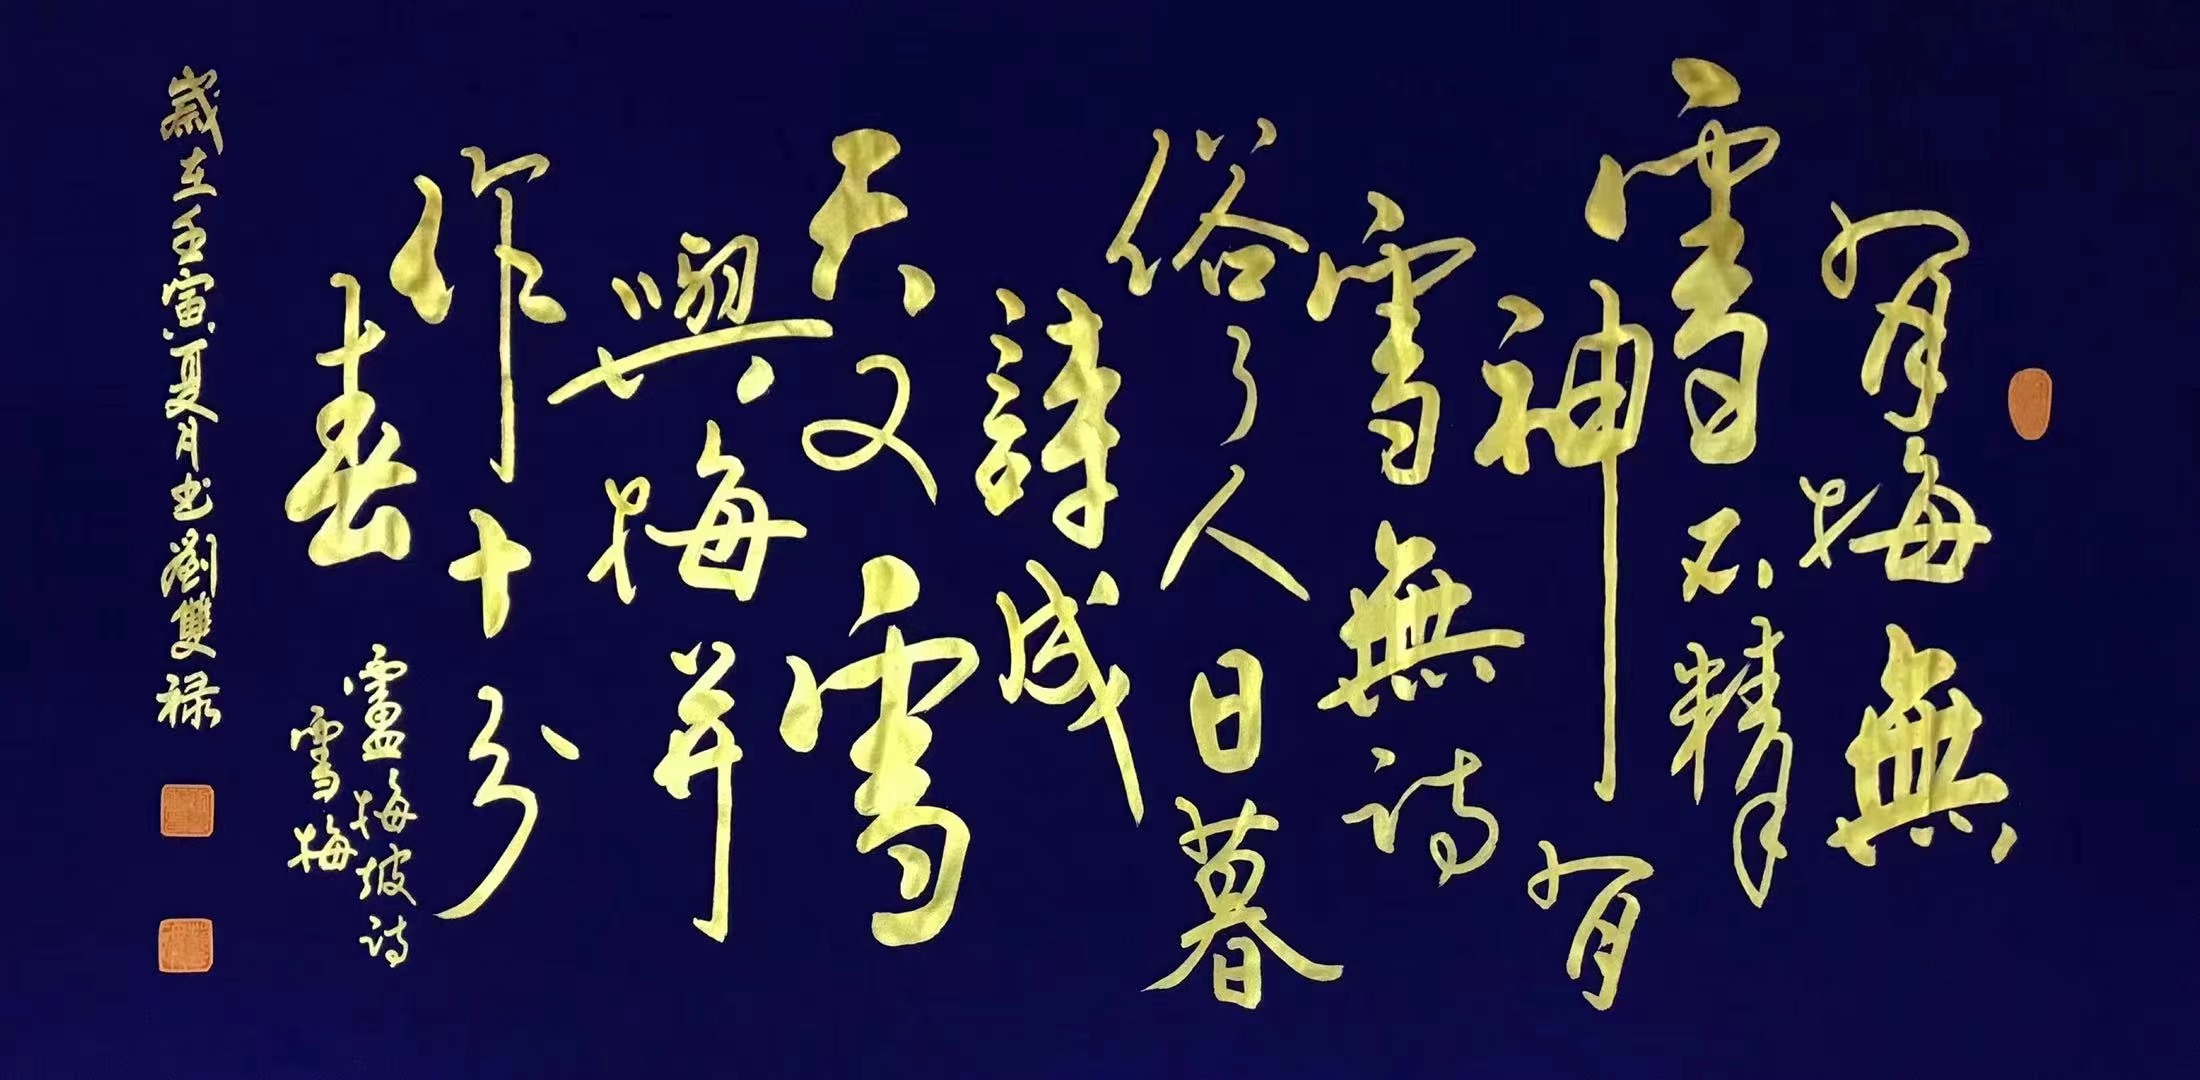 有梅無
雪不精
神有
雪無詩
俗了人日暮
詩成
天又雪
與梅并
作十分
春
盧梅坡詩
雪梅
歲在壬寅夏月書劉雙禄